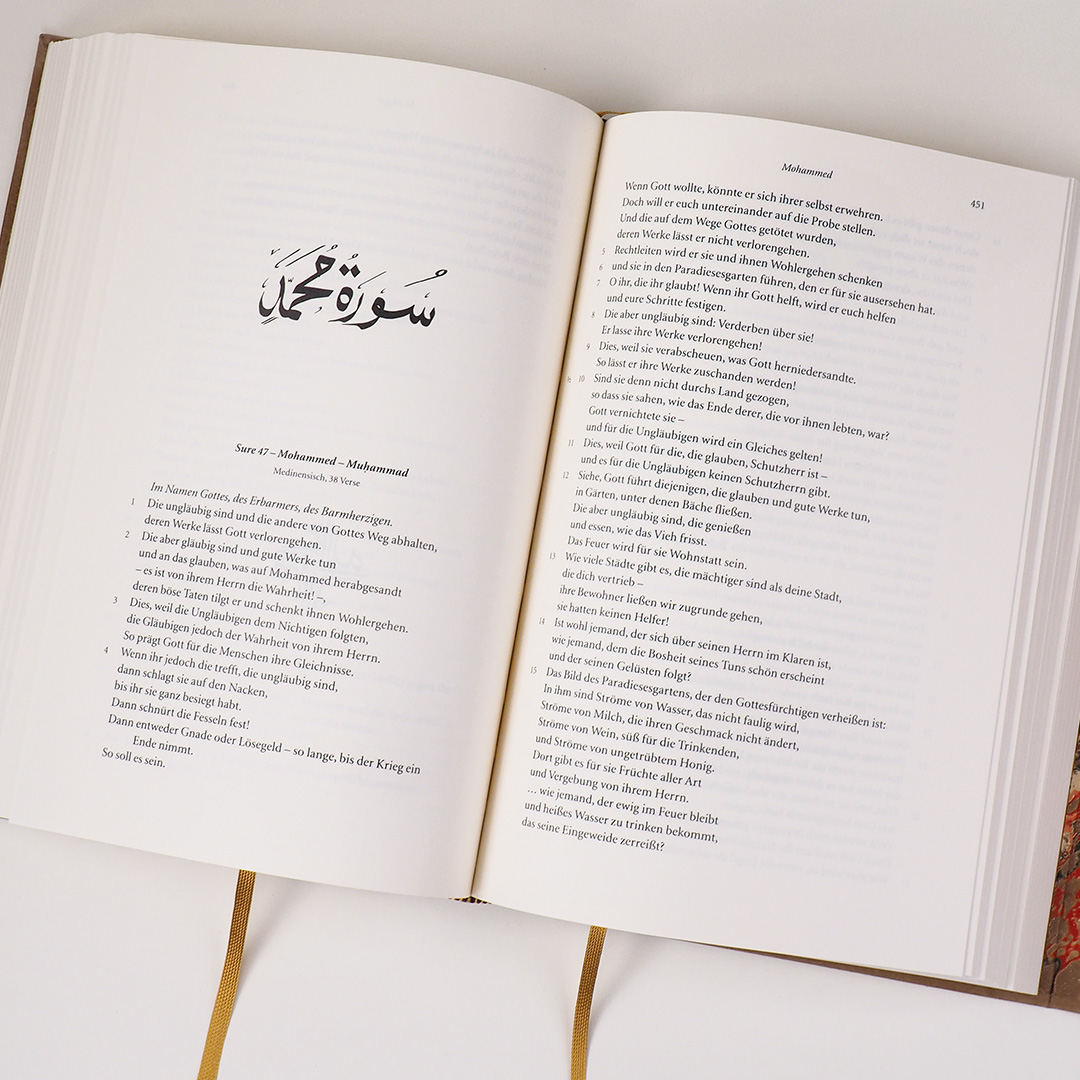 سُورَةُ مُحَمَّدٍ
Sure 47 – Mohammed – Muḥammad
Medinensisch, 38 Verse
Im Namen Gottes, des Erbarmers, des Barmherzigen.
1 Die ungläubig sind und die andere von Gottes Weg abhalten,
deren Werke lässt Gott verlorengehen.
2 Die aber gläubig sind und gute Werke tun
und an das glauben, was auf Mohammed herabgesandt
– es ist von ihrem Herrn die Wahrheit! –,
deren böse Taten tilgt er und schenkt ihnen Wohlergehen.
3 Dies, weil die Ungläubigen dem Nichtigen folgten,
die Gläubigen jedoch der Wahrheit von ihrem Herrn.
So prägt Gott für die Menschen ihre Gleichnisse.
4 Wenn ihr jedoch die trefft, die ungläubig sind,
dann schlagt sie auf den Nacken,
bis ihr sie ganz besiegt habt.
Dann schnürt die Fesseln fest!
Dann entweder Gnade oder Lösegeld – so lange, bis der Krieg ein
Ende nimmt.
So soll es sein.
Mohammed
451
Wenn Gott wollte, könnte er sich ihrer selbst erwehren.
Doch will er euch untereinander auf die Probe stellen.
Und die auf dem Wege Gottes getötet wurden,
deren Werke lässt er nicht verlorengehen.
5 Rechtleiten wird er sie und ihnen Wohlergehen schenken
6 und sie in den Paradiesesgarten führen, den er für sie ausersehen hat.
7 O ihr, die ihr glaubt! Wenn ihr Gott helft, wird er euch helfen
und eure Schritte festigen.
8 Die aber ungläubig sind: Verderben über sie!
Er lasse ihre Werke verlorengehen!
9 Dies, weil sie verabscheuen, was Gott herniedersandte.
So lässt er ihre Werke zuschanden werden!
½ 10 Sind sie denn nicht durchs Land gezogen,
so dass sie sahen, wie das Ende derer, die vor ihnen lebten, war?
Gott vernichtete sie –
und für die Ungläubigen wird ein Gleiches gelten!
11 Dies, weil Gott für die, die glauben, Schutzherr ist –
und es für die Ungläubigen keinen Schutzherrn gibt.
12 Siehe, Gott führt diejenigen, die glauben und gute Werke tun,
in Gärten, unter denen Bäche fließen.
Die aber ungläubig sind, die genießen
und essen, wie das Vieh frisst.
Das Feuer wird für sie Wohnstatt sein.
13 Wie viele Städte gibt es, die mächtiger sind als deine Stadt,
die dich vertrieb –
ihre Bewohner ließen wir zugrunde gehen,
sie hatten keinen Helfer!
14 Ist wohl jemand, der sich über seinen Herrn im Klaren ist,
wie jemand, dem die Bosheit seines Tuns schön erscheint
und der seinen Gelüsten folgt?
15 Das Bild des Paradiesesgartens, der den Gottesfürchtigen verheißen ist:
In ihm sind Ströme von Wasser, das nicht faulig wird,
Ströme von Milch, die ihren Geschmack nicht ändert,
Ströme von Wein, süß für die Trinkenden,
und Ströme von ungetrübtem Honig.
Dort gibt es für sie Früchte aller Art
und Vergebung von ihrem Herrn.
… wie jemand, der ewig im Feuer bleibt
und heißes Wasser zu trinken bekommt,
das seine Eingeweide zerreißt?